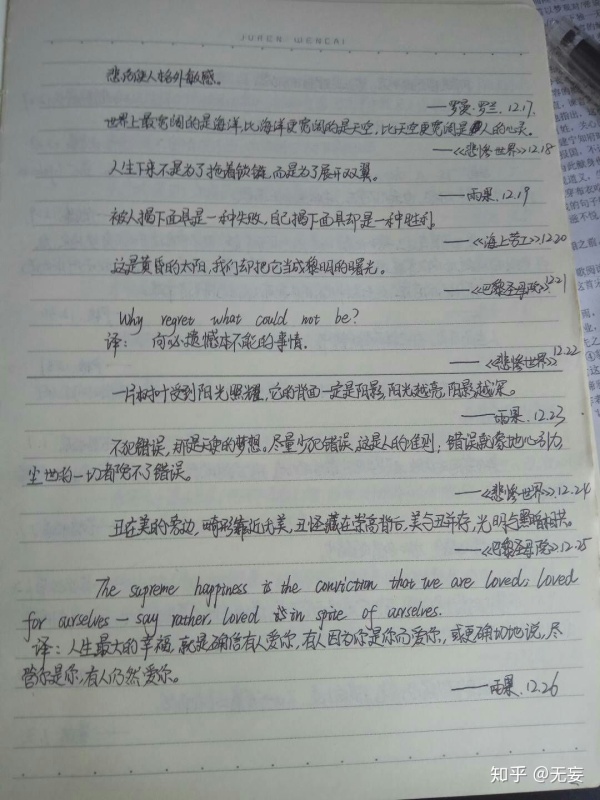 JUREN WENCAI
悲伤使人格外敏感。
——罗曼·罗兰.12.17
世界上最宽阔的是海洋,比海洋更宽阔的是天空,比天空更宽阔是人的心灵。
——《悲惨世界》12.18
人生下来不是为了拖着锁链,而是为了展开双翼。
——雨果.12.19
被人揭下面具是一种失败,自己揭下面具却是一种胜利。
——《海上劳工》12.20
这是黄昏的太阳,我们却把它当成黎明的曙光。
——《巴黎圣母院》12.21
Why regret what could not be?
译: 何必遗憾本不能的事情.
——《悲惨世界》12.22
一片树叶受到阳光照耀,它的背面一定是阴影,阳光越亮,阴影越深。
——雨果.12.23
不犯错误,那是天使的梦想。尽量少犯错误,这是人的准则;错误就像地心引力
尘世的一切都免不了错误。
——《悲惨世界》.12.24
丑在美的旁边,畸形靠近优美,丑怪藏在崇高背后,美与丑并存,光明与黑暗相共。
——《巴黎圣母院》.12.25
The supreme happiness is the conviction that we are loved; loved
for ourselves — say rather, loved in spite of ourselves.
译:人生最大的幸福,就是确信有人爱你,有人因为你是你而爱你,或更确切地说,尽
管你是你,有人仍然爱你。
——雨果.12.26
知乎 @无妄